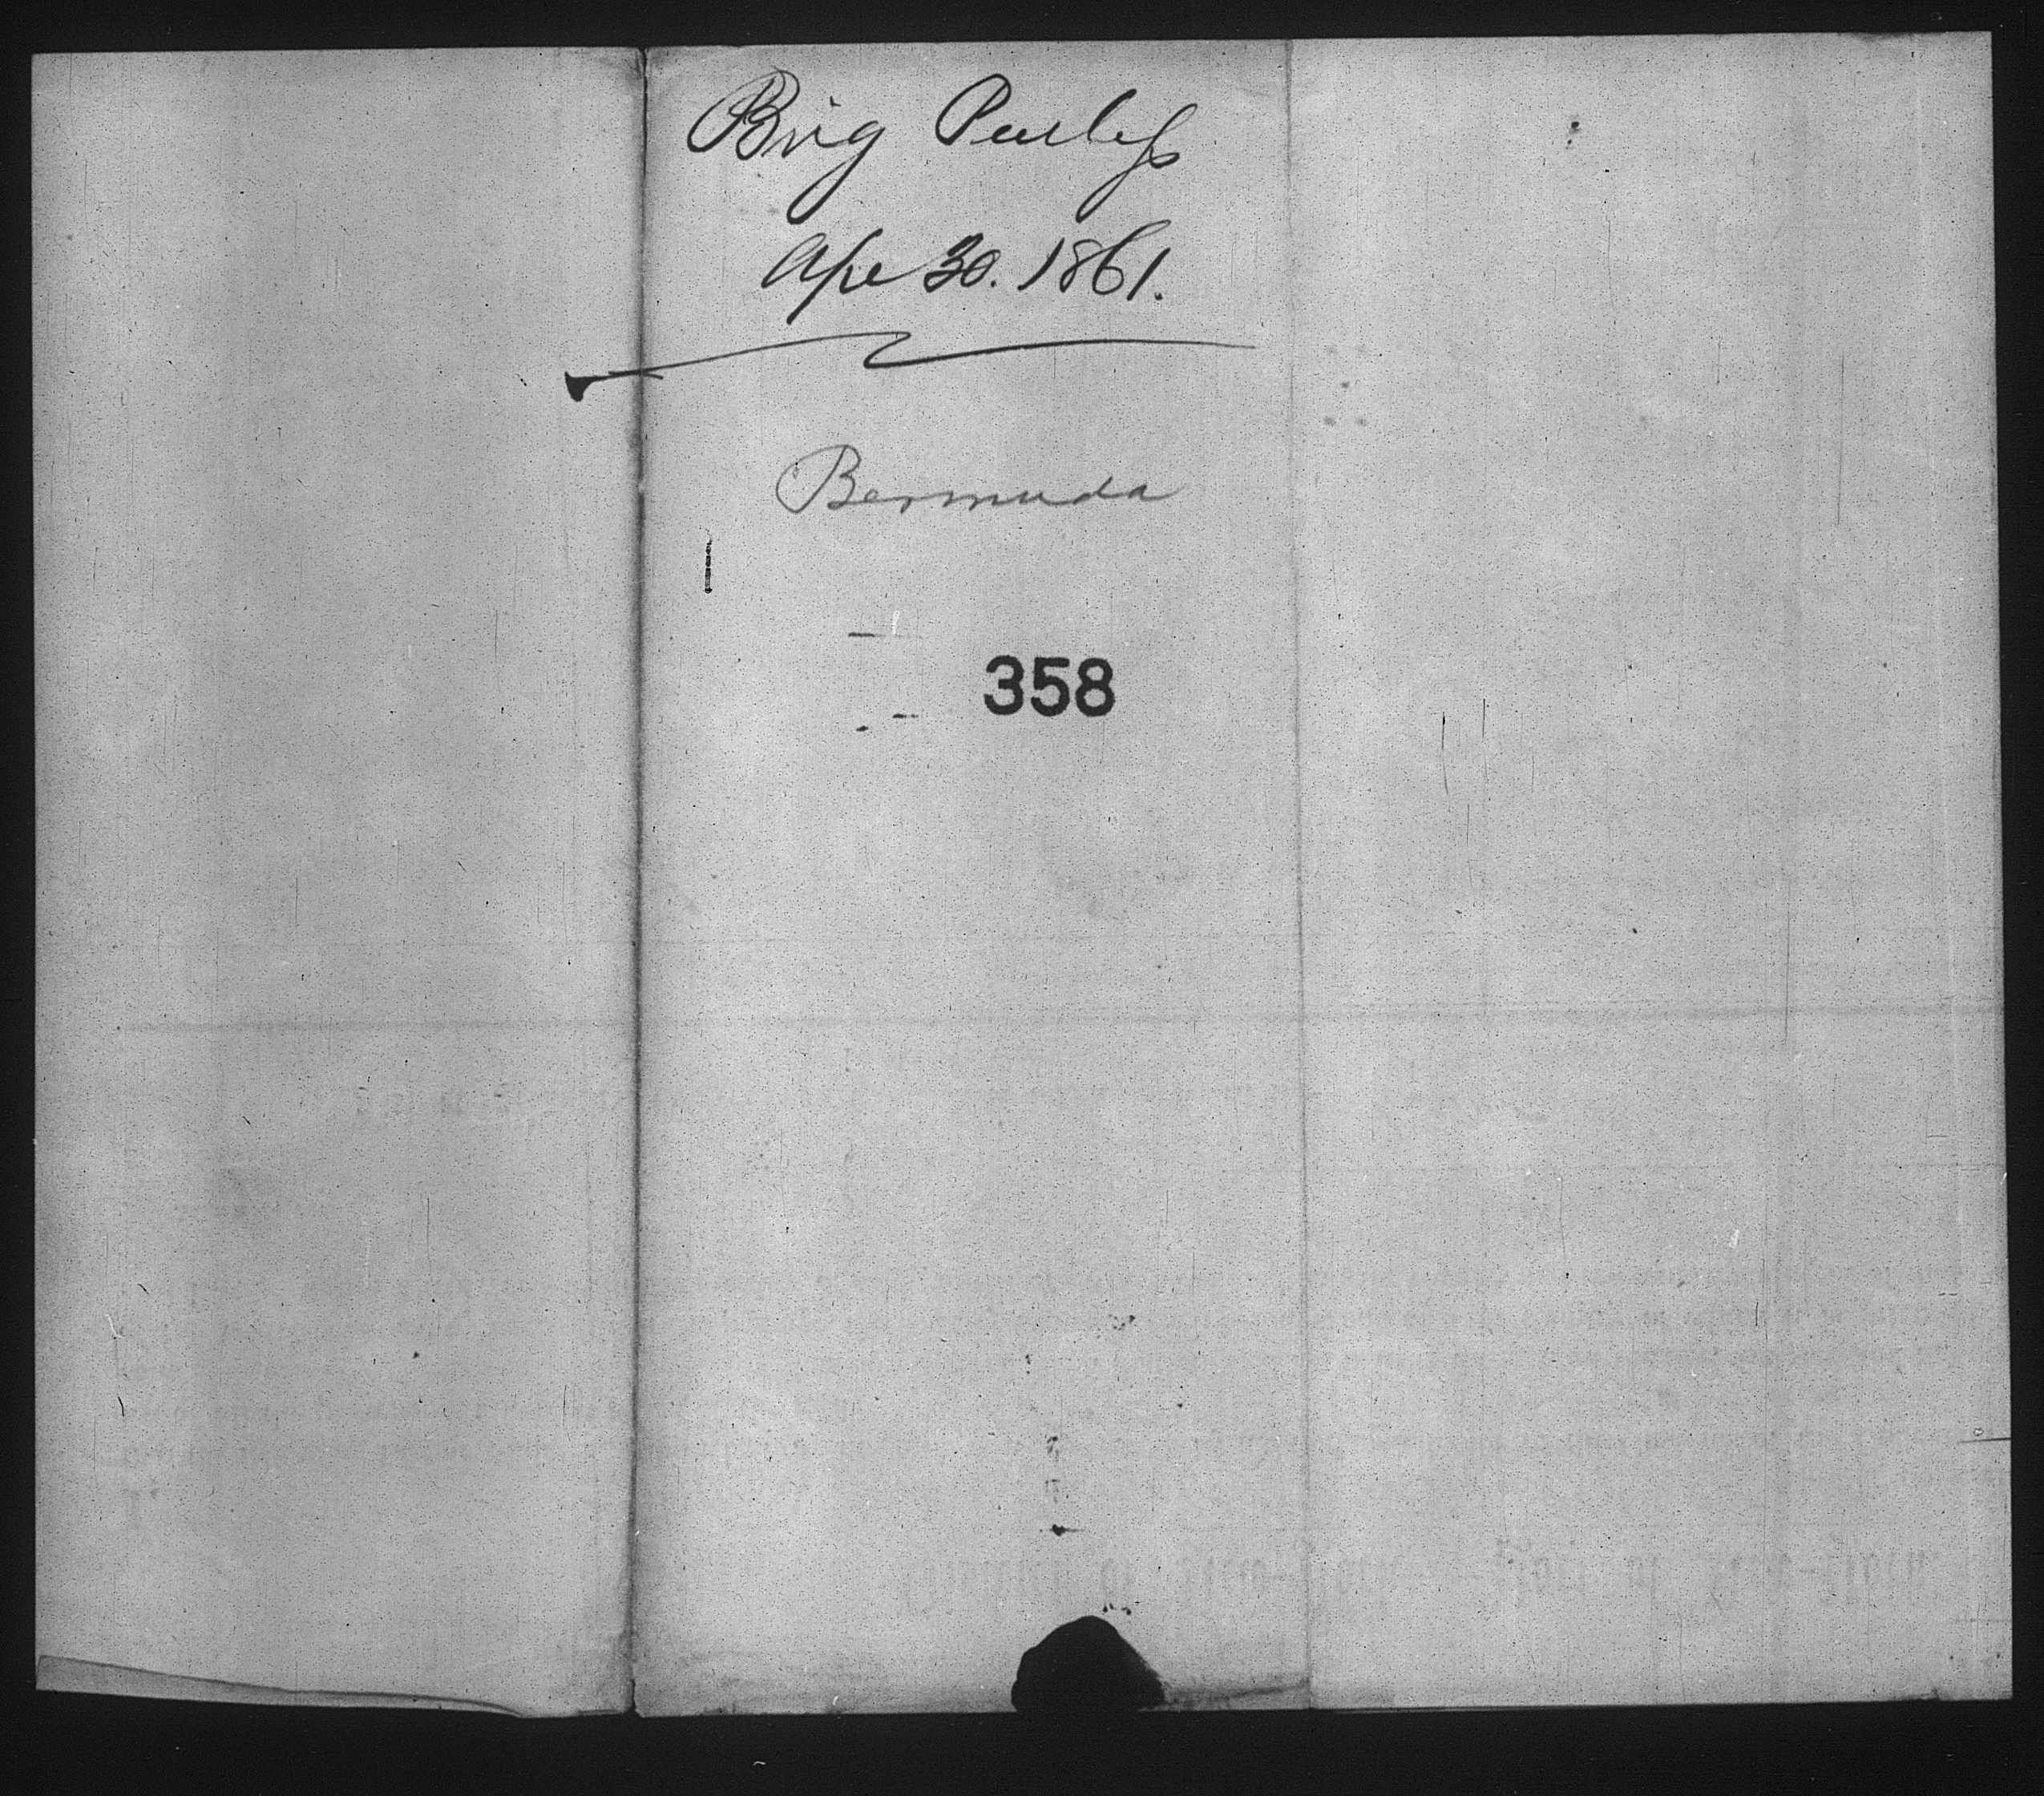 Brig Peerless
Apl 30. 1861.
Bermuda
358